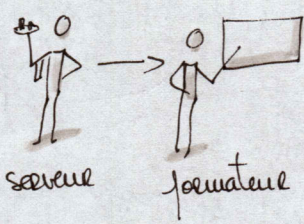 serveur
formateur